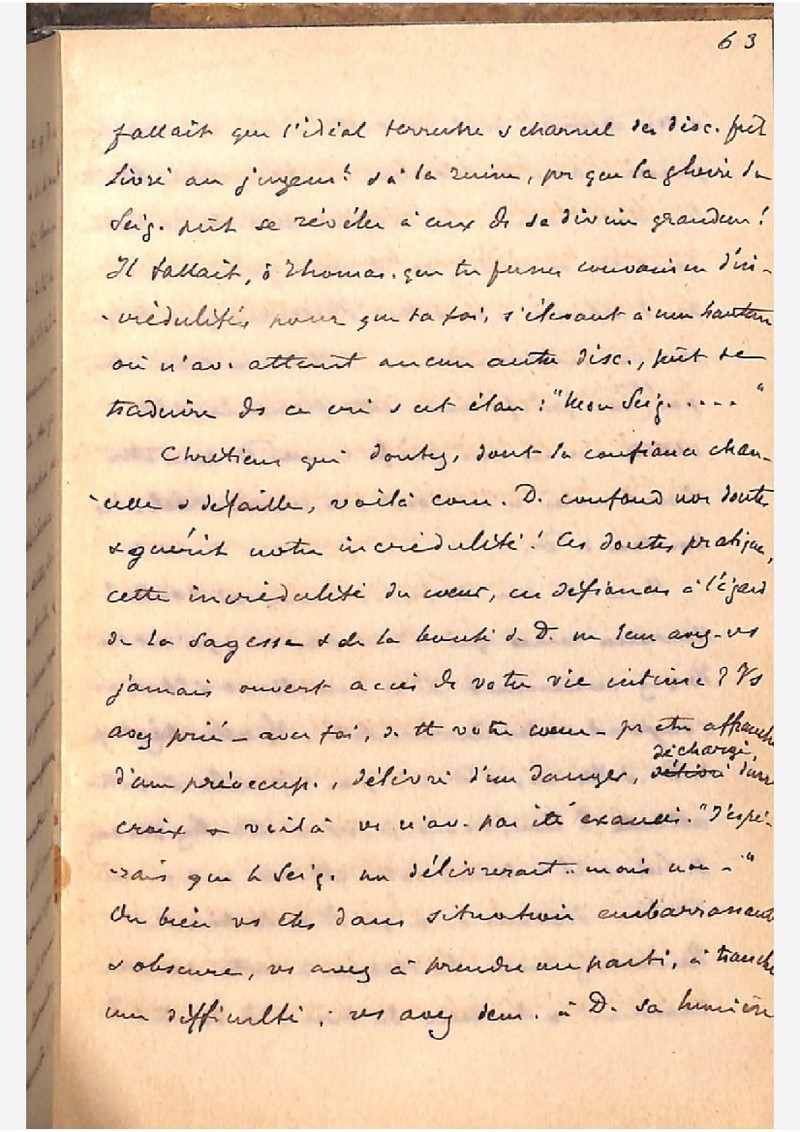 63
fallait que l'idéal terrestre & charnel des disc. fût
livré au jugemt & à la ruine, pr que la gloire du
Seig. pût se révéler à eux ds sa divine grandeur!
Il fallait, ô Thomas. que tu fusses convaincu d'in-
-crédulités pour que ta foi, s'élevant à une hauteur
où n'av. atteint aucun autre disc., pût se
traduire ds ce cri & cet élan : "Mon Seig. .... "
Chrétiens qui doutez, dont la confiance chan-
-celle & défaille, voilà com. D. confond nos doutes
& guérit notre incrédulité! Ces doutes pratiques,
cette incrédulité du cœur, ces défiances à l'égard
de la sagesse & de la bonté de D. ne leur avez-vs
jamais ouvert accès ds votre vie intime? Vs
avez prié - avec foi, de tt votre cœur - pr être affranchi
déchargé
d'une préoccup., délivré d'un danger, délivré d'une
croix & voilà vs n'av. pas été exaucé. "J'espé-
-rais que le Seig. me délivrerait.. mais non -"
Ou bien vs êtes dans situation embarrassante
& obscure, vs avez à prendre un parti, à trancher
une difficulté ; vs avez dem. à D. sa lumière